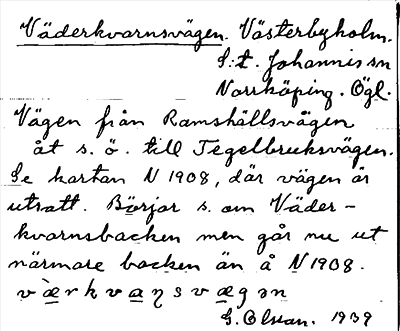 Väderkvarnsvägen. Västerbyholm.
S:t. Johannis sn
Norrköping. Ögl.
Vägen från Ramshällsvägen
åt s. ö. till Tegelbruksvägen.
Se kartan N 1908, där vägen är
utsatt. Börjar s. om Väder-
kvarnsbacken men går nu ut
närmare backen än å N 1908.
væ̀rkvaŋsvægən
G. Olsson. 1939